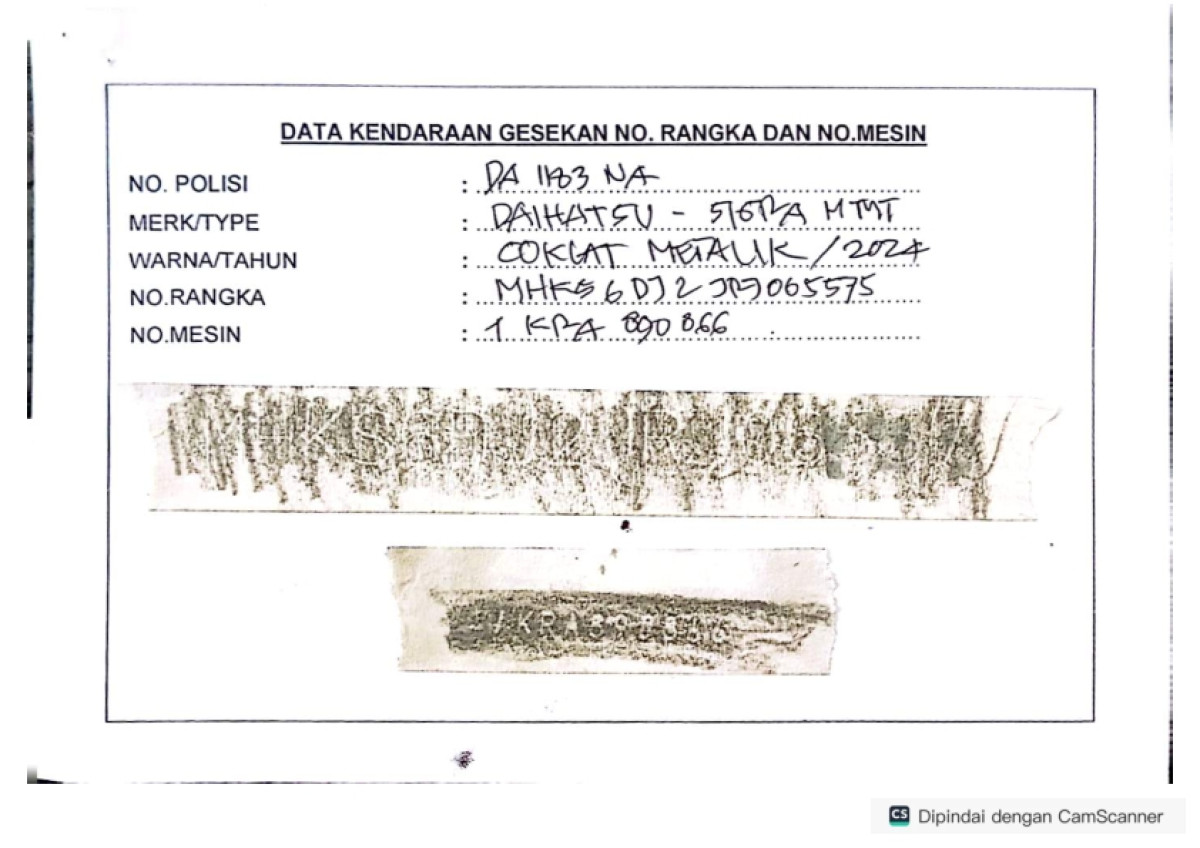 DATA KENDARAAN GESEKAN NO. RANGKA DAN NO.MESIN
NO. POLISI : DA 1183 NA
MERK/TYPE : DAIHATSU - SIGRA M MT
WARNA/TAHUN : COKLAT METALIK / 2024
NO.RANGKA : MHKS6DJ2JRJ065575
NO.MESIN : 1 KRA 890866
1KRA890866
CS Dipindai dengan CamScanner